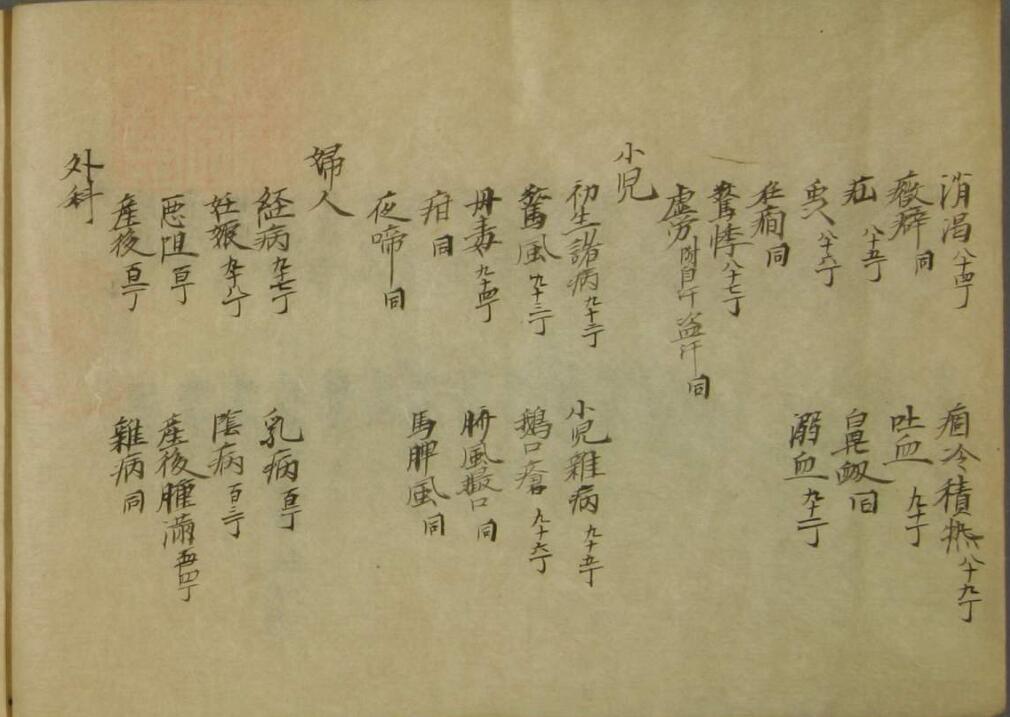 消渇 八十四丁
痼冷積熱 八十九丁
癥癖 同
吐血 九十丁
疝 八十五丁
鼻衂 同
八十六丁
溺血 九十一丁
狂癇 同
驚悸 八十七丁
虚労 附自汗盗汗 同
小児
初生諸病 九十二丁
小児雜病 九十五丁
驚風 九十三丁
鵝口瘡 九十六丁
丹毒 九十四丁
臍風撮口 同
疳 同
馬脾風 同
夜啼 同
婦人
経病 九十七丁
乳病
妊娠 九十八丁
陰病 百三丁
悪阻 百丁
産後腫滿 百四丁
産後
雜病 同
外科